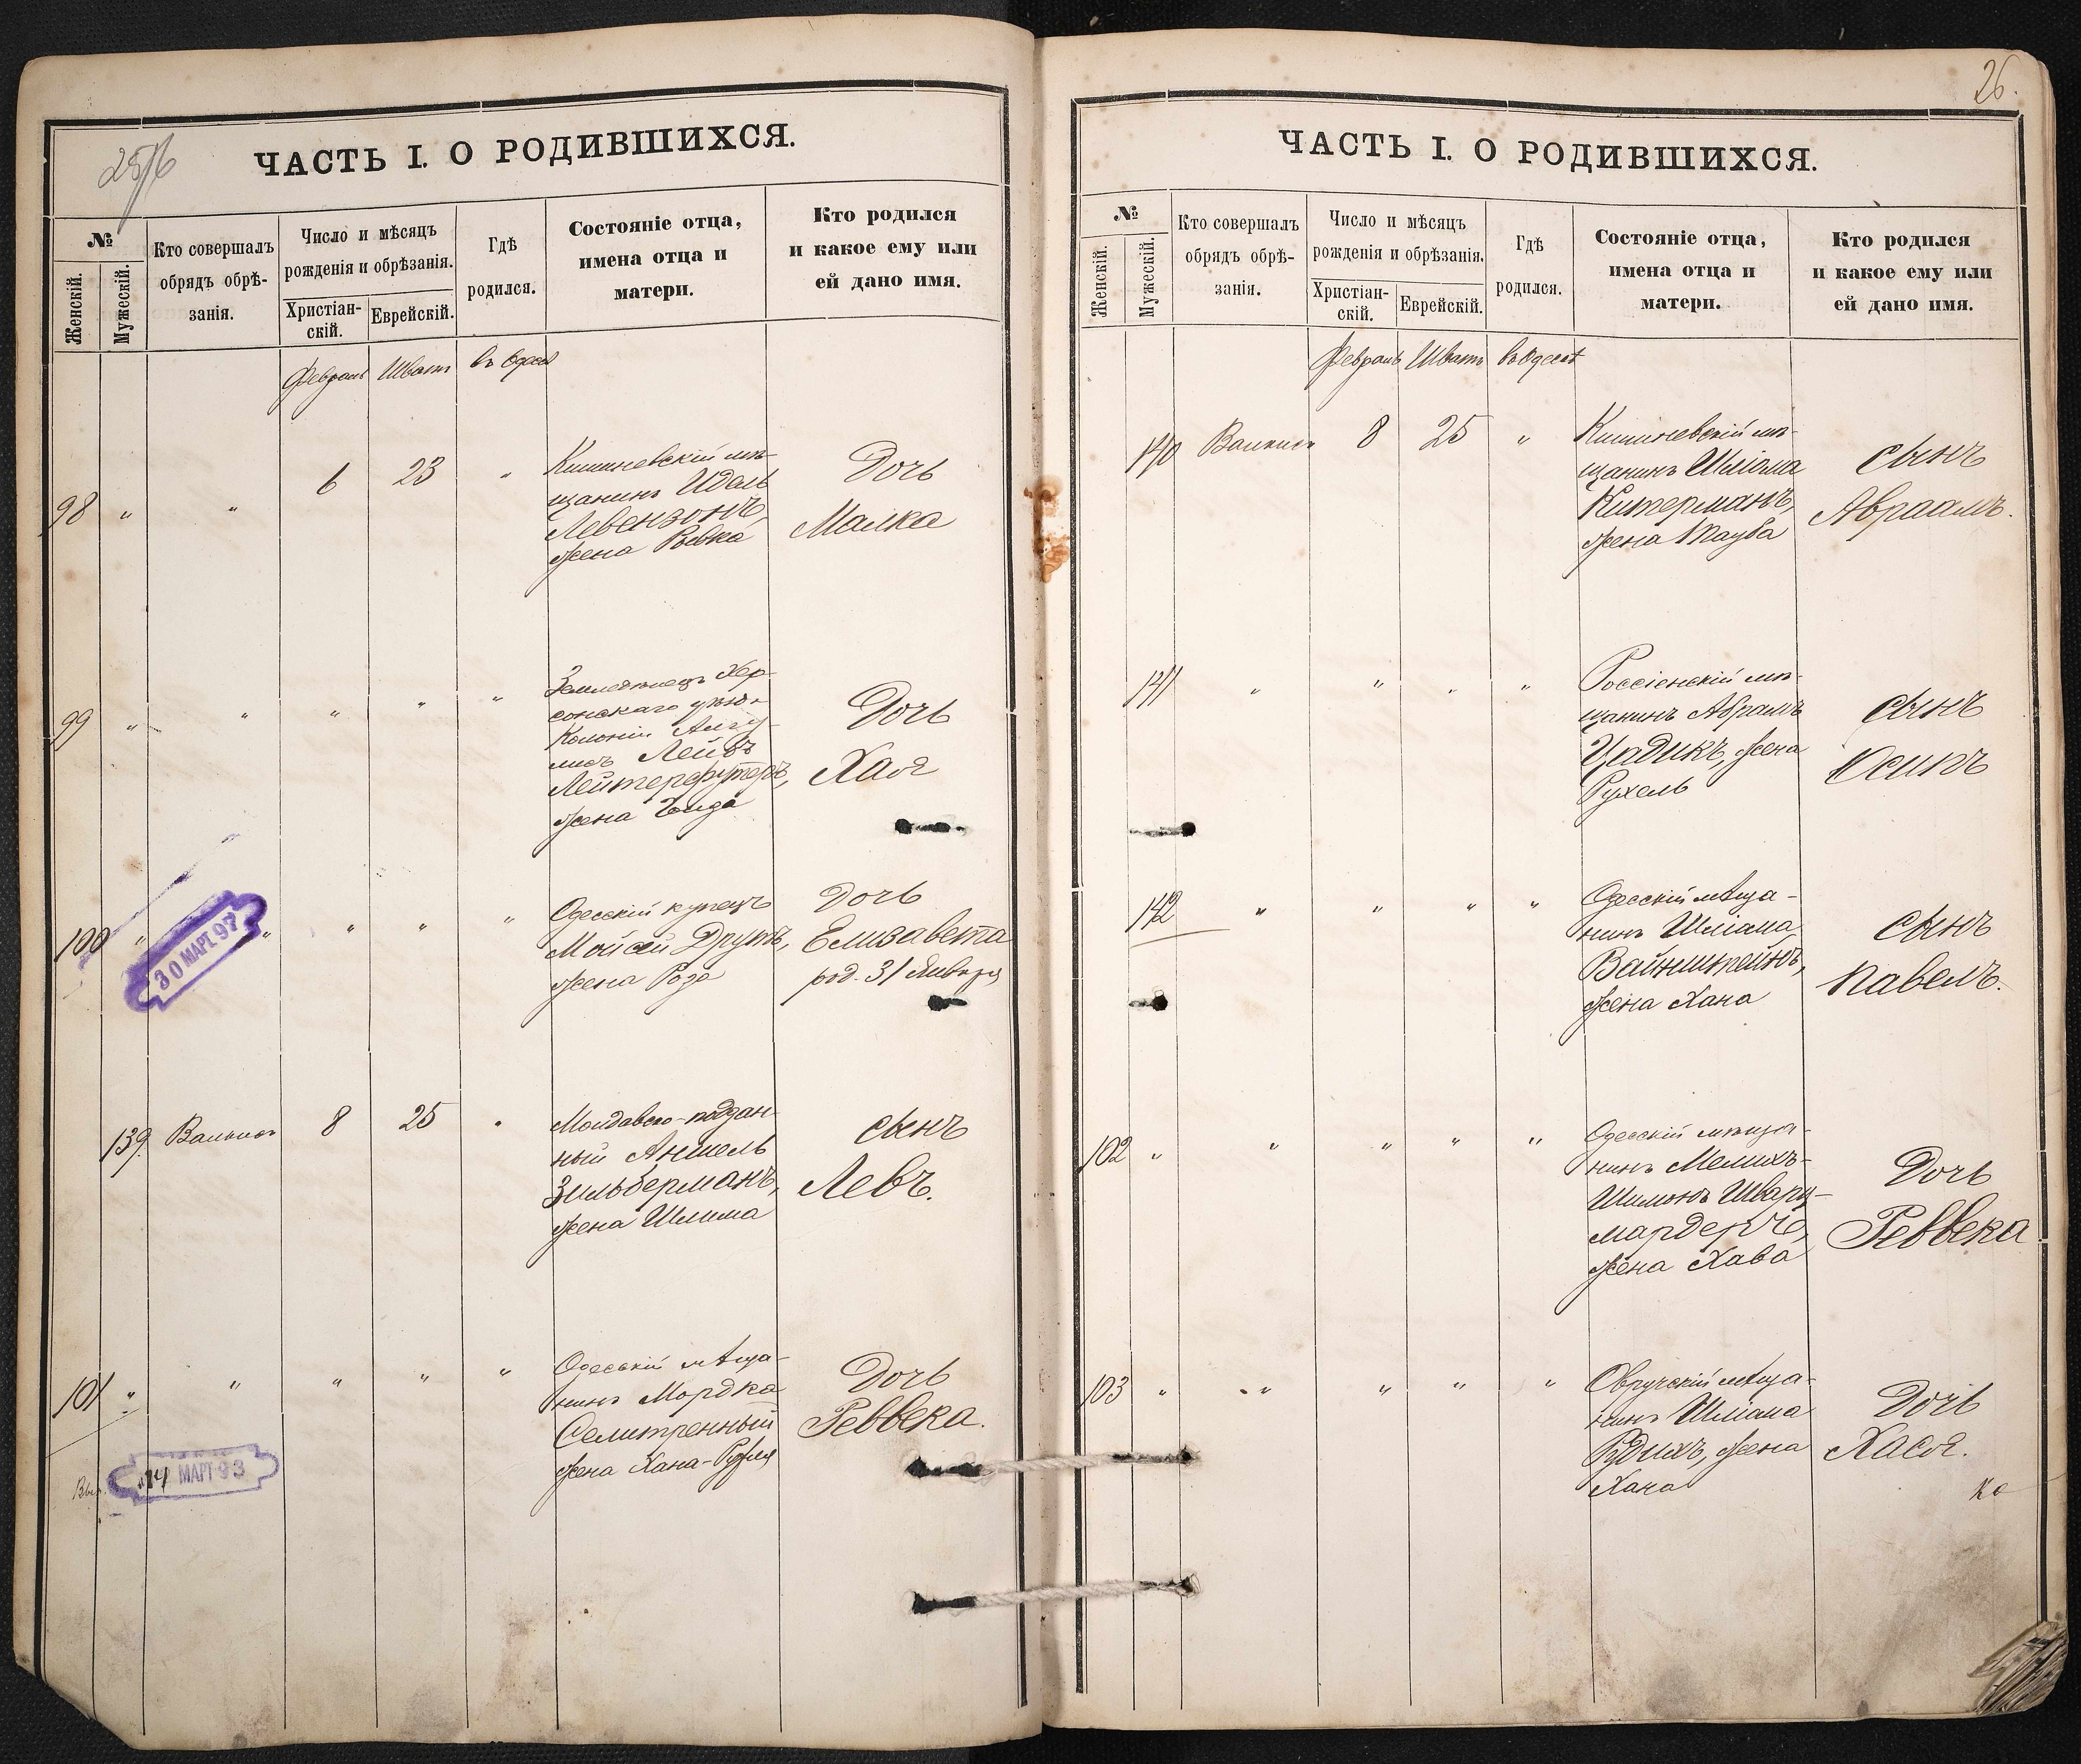 25/б
ЧАСТЬ I. О РОДИВШИХСЯ.
№
Женскій.
Мужескій.
Кто совершалъ
обрядъ обрѣ-
занія.
Число и мѣсяцъ
рожденія и обрѣзанія.
Христіан-
скій.
Еврейскій.
Гдѣ
родился.
Состояніе отца,
имена отца и
матери.
Кто родился
и какое ему или
ей дано имя.
Февраль Шватъ въ Одессѣ
98 " " 6 23 "
Кишиневскій мѣ-
щанинъ Идель
Левензонъ,
жена Ривка
Дочь
Малка
99 " " " " "
Землевладѣлецъ Хер-
сонскаго уѣзда
Колоніи
Лейбъ
Лейтерфутеръ,
жена
Дочь
Хая
100 " " " " "
Одесскій купецъ
Мойсей Друкъ,
жена Роза
Дочь
Елизавета
род. 31 Января
30 МАРТ. 97
139. 8 25 "
Молдавско-поддан-
ный Аншель
Зильберманъ,
жена Шлима
сынъ
Левъ.
101 " " " " "
Одесскій мѣща-
нинъ Мордка
Селитренный
жена Хана-Рухля
Дочь
Реввека.
14 МАРТ 93
26.
ЧАСТЬ I. О РОДИВШИХСЯ.
№
Женскій.
Мужескій.
Кто совершалъ
обрядъ обрѣ-
занія.
Число и мѣсяцъ
рожденія и обрѣзанія.
Христіан-
скій.
Еврейскій.
Гдѣ
родился.
Состояніе отца,
имена отца и
матери.
Кто родился
и какое ему или
ей дано имя.
Февраль Шватъ въ Одессѣ
140 8 25 "
Кишиневскій мѣ-
щанинъ Шліома
Китерманъ,
жена Тауба
сынъ
Авраамъ.
141 " " " "
Россіенскій мѣ-
щанинъ Абрамъ
Цадикъ, жена
Рухель
сынъ
Осипъ
142 " " " "
Одесскій мѣща-
нинъ Шліома
Вайнштейнъ,
жена Хана
сынъ
Павелъ.
102 " " " " "
Одесскій мѣща-
нинъ Мелихъ-
Шимонъ Шварц-
мардеръ,
жена Хава
Дочь
Реввека
103 " " " " "
Овручскій мѣща-
нинъ Шліома
Рудихъ, жена
Хана
Дочь
Хася.